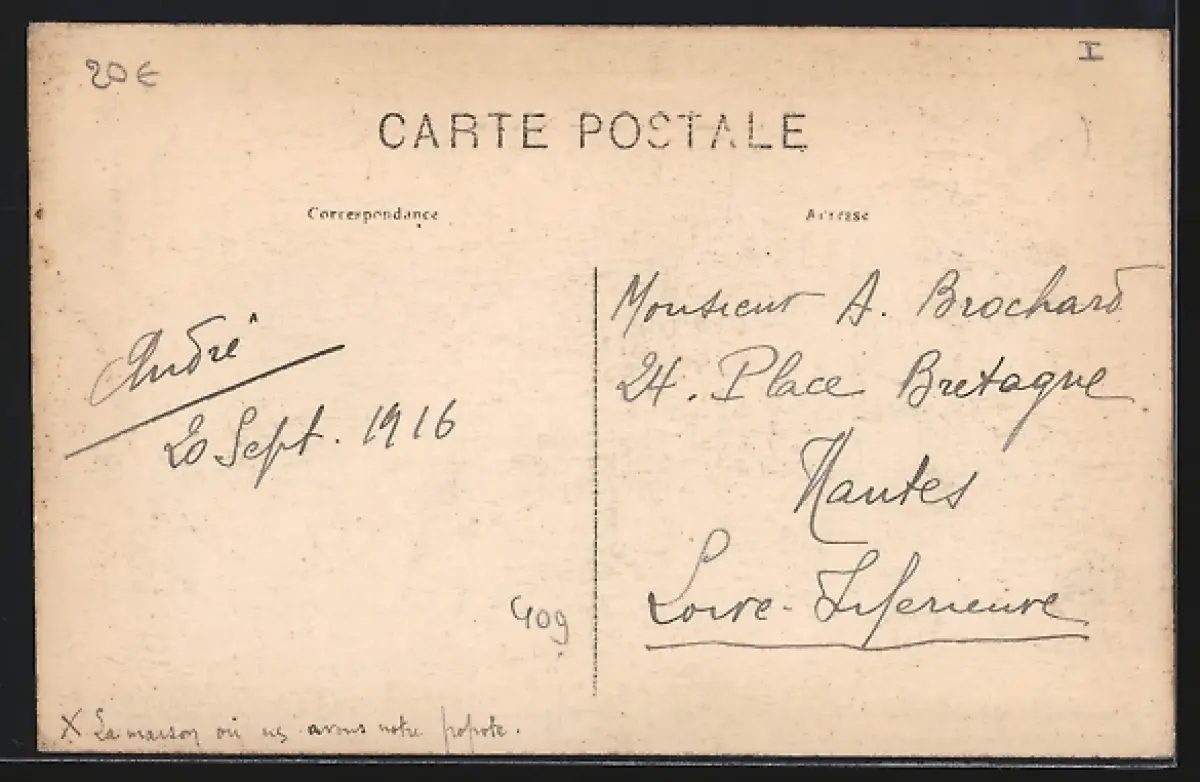 20€
I
CARTE POSTALE
Correspondance
Adresse
André
20 Sept. 1916
Monsieur A. Brochard
24. Place Bretagne
Nantes
Loire-Inferieure
409
X La maison où ns avons notre popote.